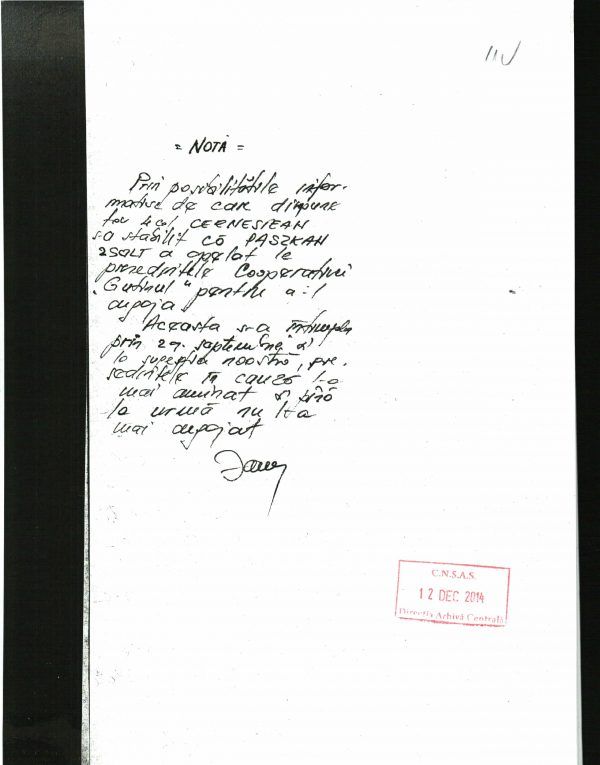 11V
= NOTĂ =
Prin posibilitățile infor-
mative de care dispune
tov lt. col. CERNESTEAN
s-a stabilit că PASZKAN
ZSOLT a apelat le
președintele Cooperativei
"Gutinul" pentru a-l
angaja
Aceasta s-a întîmplat
prin luna septembrie și
la sugestia noastră, pre-
ședintele în cauză l-a
mai amînat și pînă
la urmă nu l-a
mai angajat
C.N.S.A.S.
12 DEC 2014
Direcția Arhivă Centrală